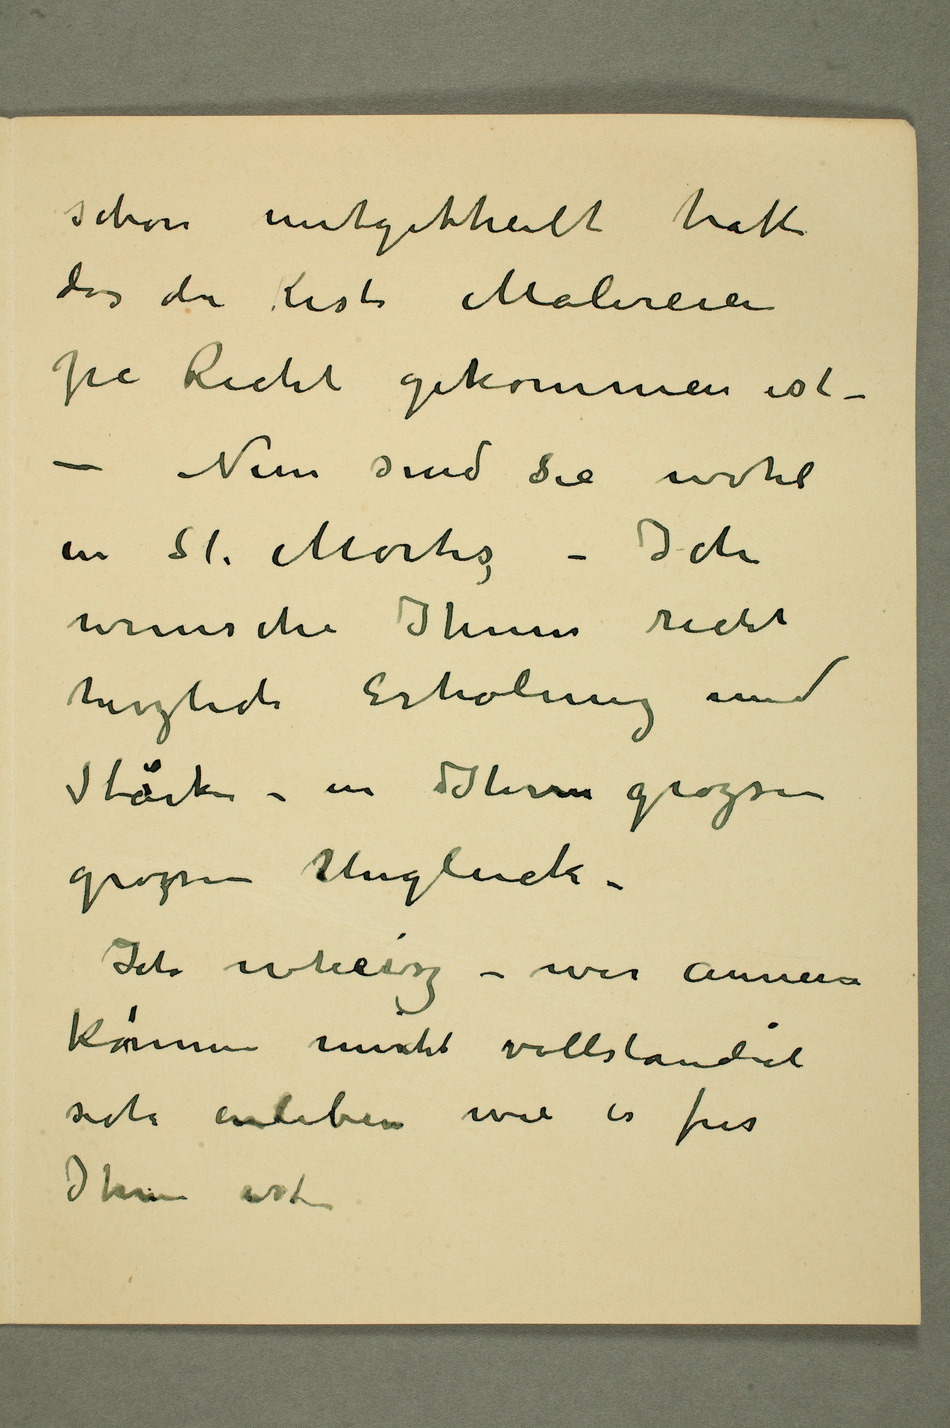 schon mitgetheilt hatte
das die Kiste Malereien
pe Recht gekommen ist –
— Nun sind Sie wohl
in St. Moritz – Ich
wunsche Ihnen recht
herzlich Erholung und
Stärke – in Ihrem grozsen
grozsen Unglück –
Ich wheisz – wir annern
können nicht vollstandit
sich einleben wie es fur
Ihnen ist